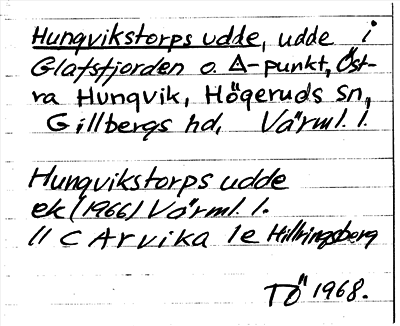 Hungvikstorps udde, udde i
Glafsfjorden o. Δ-punkt, Öst-
ra Hungvik, Högeruds sn,
Gillbergs hd, Värml. l.
Hungvikstorps udde
ek (1966) Värml. l.
11 C Arvika 1e Hillringsberg
TÖ 1968.